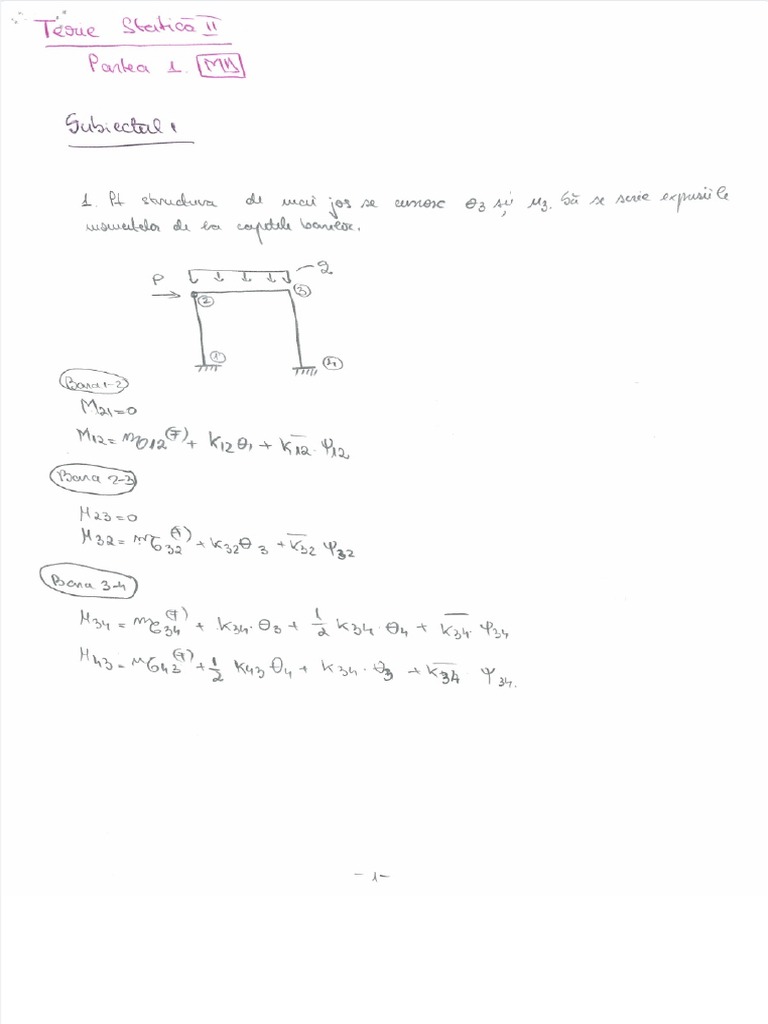 Teorie Statică II
Partea 1. MD
Subiectul 1
1. Pt structura de mai jos se cunosc θ3 și u3. Să se scrie expresiile
momentelor de la capetele barelor.
P
q
2
3
1
4
Bara 1-2
M21=0
M12= m612(F) + K12θ1 + K̅12·Ψ12
Bara 2-3
M23=0
M32= m632(F) + K32θ3 + K̅32 Ψ32
Bara 3-4
M34= m634(F) + K34·θ3 + 1/2 K34·θ4 + K̅34·Ψ34
M43= m643(F) + 1/2 K43θ4 + K34·θ3 + K̅34 Ψ34.
-1-